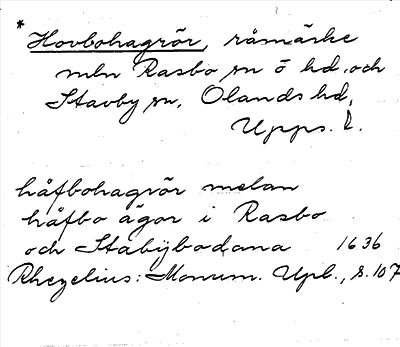 * Hovbohagrör, råmärke
mln Rasbo sn ö hd. och
Stavby sn, Olands hd,
Upps. l.
håfbohagrör melan
håfbo ägor i Rasbo
och Stabÿbodana 1636
Rhezelius: Monum. Upl., s. 107